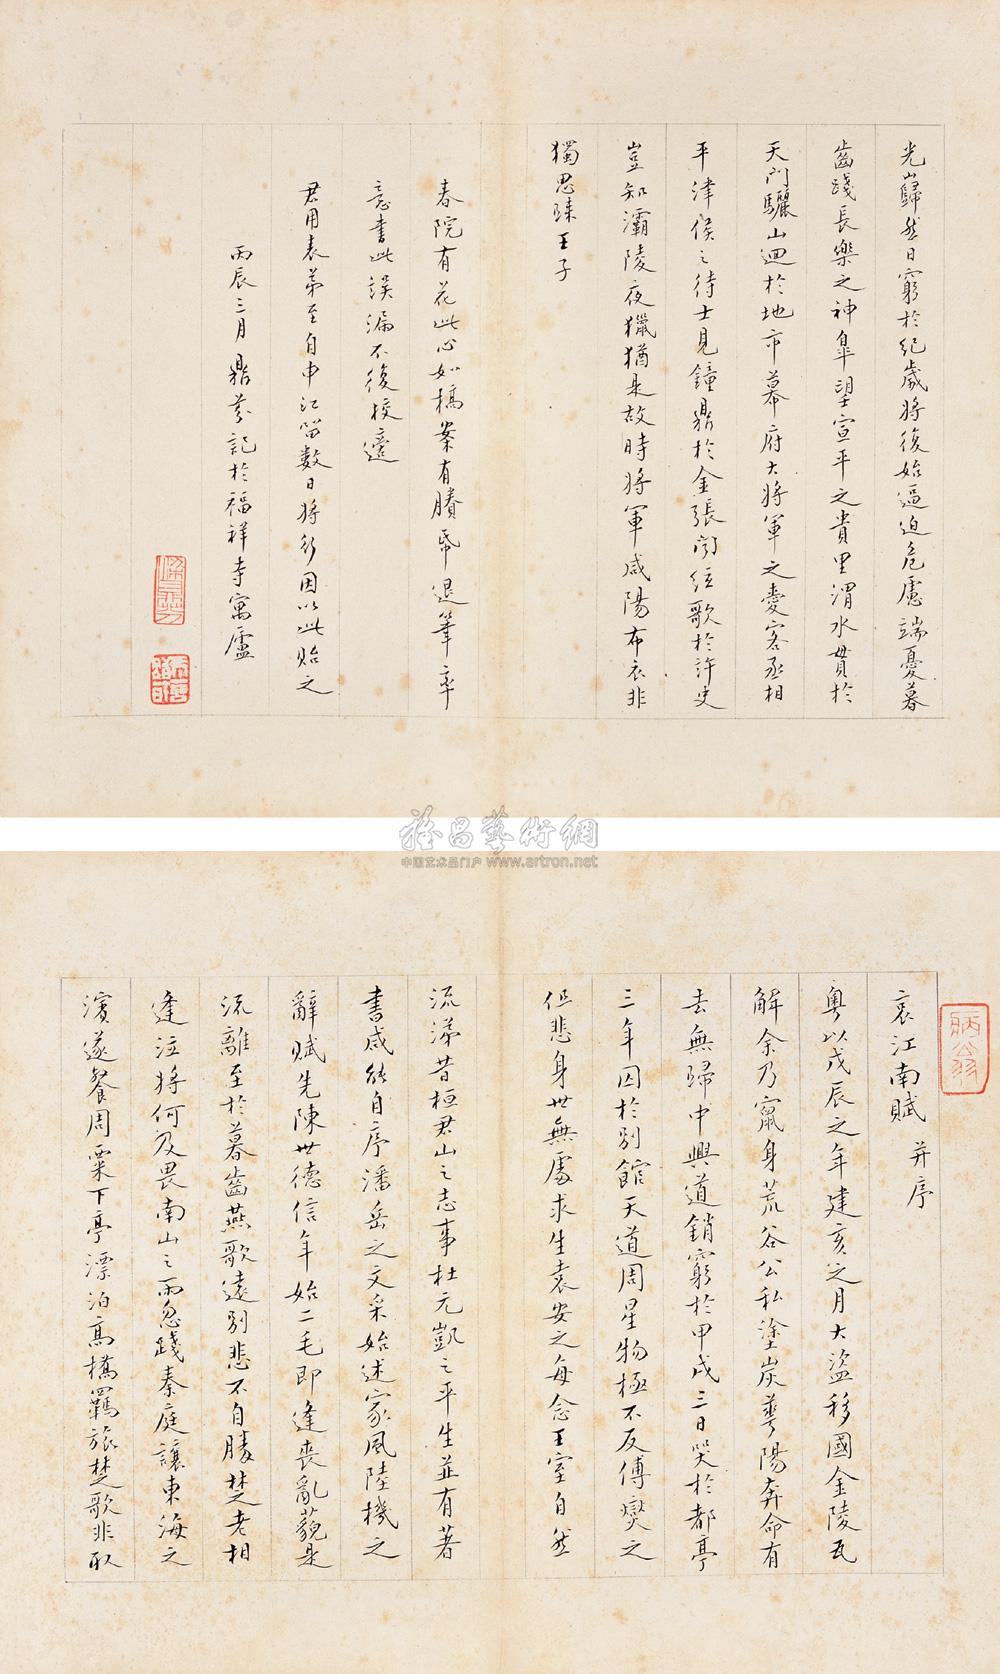 光巋然日窮於紀歲將復始逼迫危慮端憂暮
齒踐長樂之神皐望宣平之貴里渭水貫於
天門驪山迴於地市幕府大將軍之愛客丞相
平津侯之待士見鐘鼎於金張聞弦歌於許史
豈知灞陵夜獵猶是故時將軍咸陽布衣非
獨思歸王子
春院有花此心如槁案有賸帋退筆率
意書此誤漏不復校邊
君用表弟至自申江留數日將行因以此貽之
丙辰三月鼎芬記於福祥寺寓廬
雅昌藝術網
中国艺术品门户 www.artron.net
病翁
哀江南賦 并序
粵以戊辰之年建亥之月大盜移國金陵瓦
解余乃竄身荒谷公私塗炭華陽奔命有
去無歸中興道銷窮於甲戌三日哭於都亭
三年囚於別館天道周星物極不反傅燮之
但悲身世無處求生袁安之每念王室自然
流涕昔桓君山之志事杜元凱之平生並有著
書咸能自序潘岳之文采始述家風陸機之
辭賦先陳世德信年始二毛即逢喪亂藐是
流離至於暮齒燕歌遠別悲不自勝楚老相
逢泣將何及畏南山之雨忽踐秦庭讓東海之
濱遂餐周粟下亭漂泊高橋羈旅楚歌非取